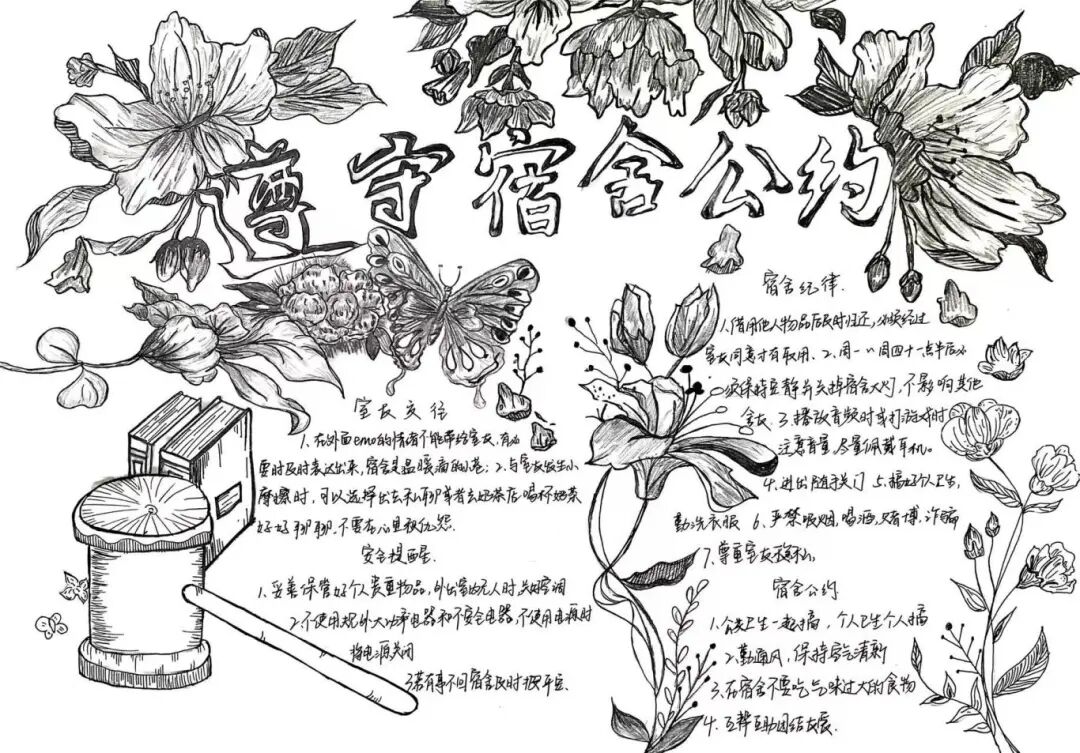 遵守宿舍公约
室友交往
1. 在外面emo的情绪不能带给室友,有必
要时及时表达出来,宿舍是温暖滴的小巷;2. 与室友发生小
摩擦时,可以选择出去私聊或者去奶茶店喝杯奶茶
好好聊聊,不要在心里积仇怨。
安全提醒
1. 妥善保管好个人贵重物品,外出室内无人时关好空调
2. 不使用规外大功率电器和不安全电器,不使用电器时
将电源关闭
3. 若有事不回宿舍及时报平安.
宿舍纪律.
1. 借用他人物品后及时归还,必须经过
室友同意才有取用、2. 周一~周四十一点半后必
须保持安静并关掉宿舍大灯,不影响其他
舍友. 3. 播放音频时或打游戏时
注意音量,尽量佩戴耳机。
4. 进出随手关门 5. 搞好个人卫生,
勤洗衣服 6. 严禁吸烟,喝酒,赌博,诈骗
7. 尊重室友隐私。
宿舍公约
1. 公共卫生一起搞,个人卫生个人搞
2. 勤通风,保持空气清新
3. 在宿舍不要吃气味过大的食物
4. 互帮互助团结友爱.